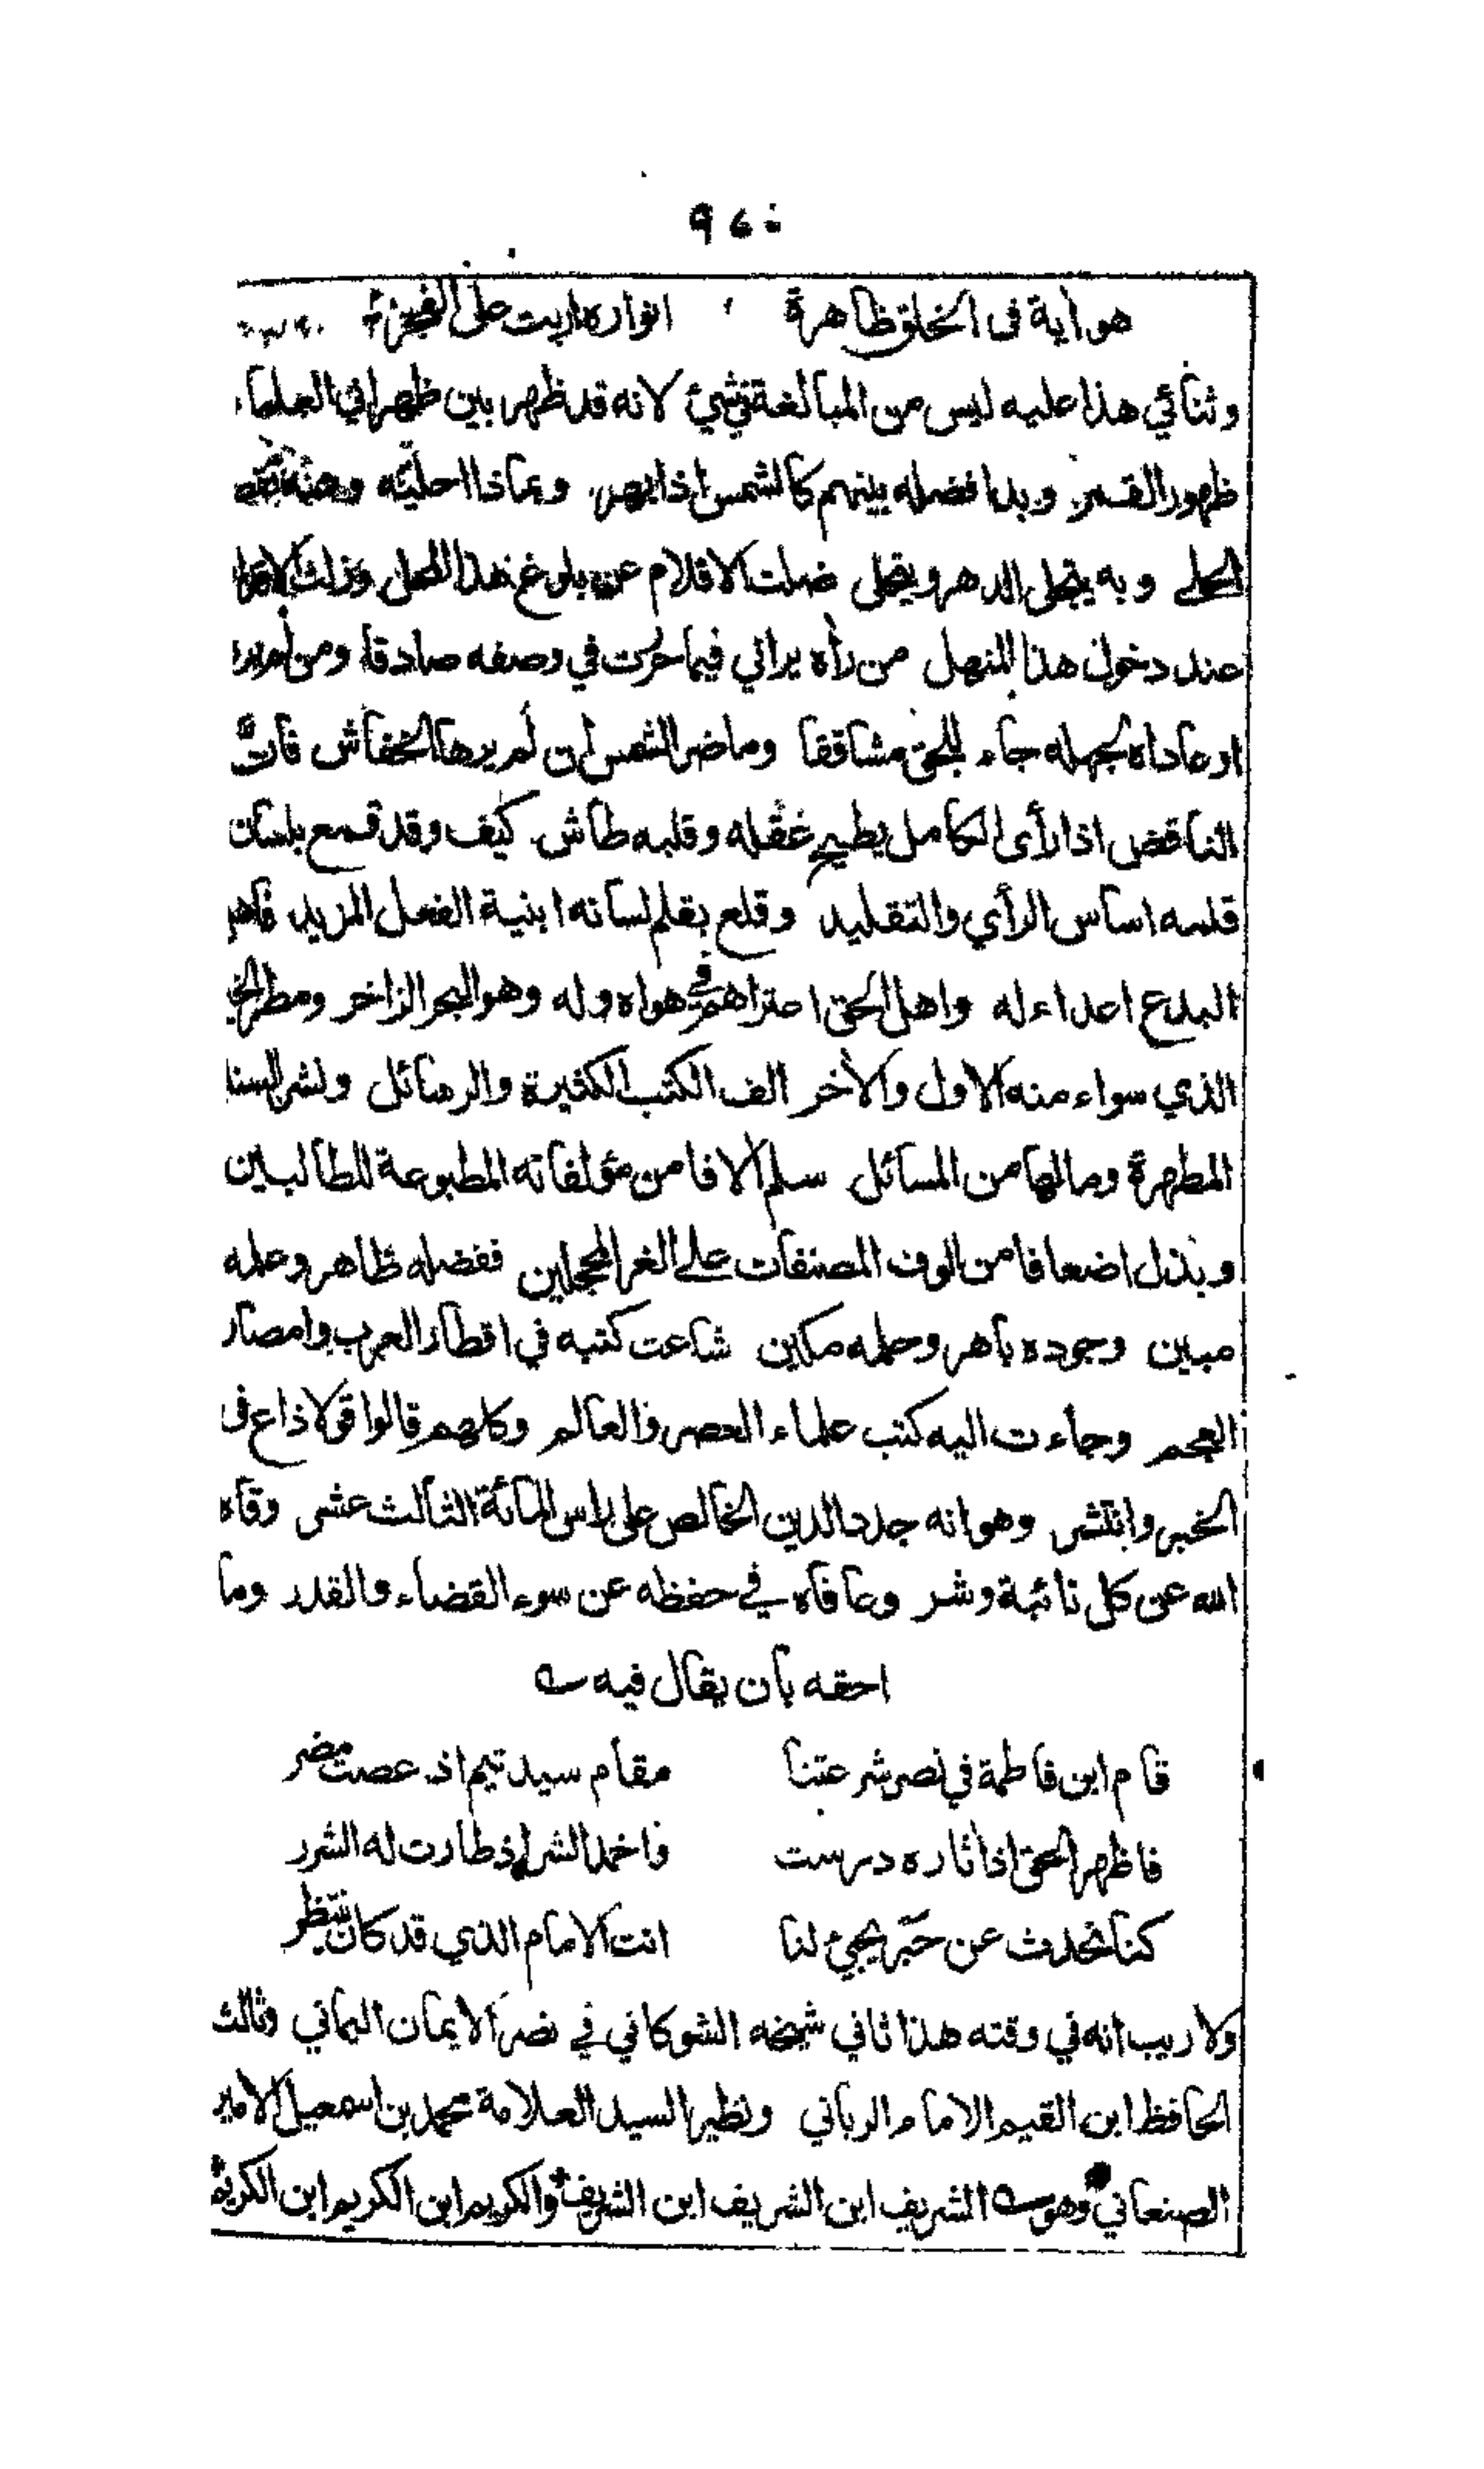 ٩٤٠
هو آية في الخلق ظاهرة انواره اربت على الفجر
وثنائي هذا عليه ليس من المبالغة في شيئ لانه قد ظهر بين ظهراني العلماء
ظهور القمر وبدا فضله بينهم كالشمس اذا بهر وبماذا احليه
الحلي وبه يتحلى الدهر ويتجلى ضلت الاقلام عن بلوغ هذا
عند دخول هذا المنهل من رأه يراني فيما حررت في وصفه صادقا ومن
او عاداه لجهله جاء للحق مشاققا وما ضر الشمس ان لم يرها الخفاش فان
الناقص اذا رأى الكامل يطيح عقله وقلبه طاش كيف وقد قمع بلسان
قلمه اساس الرأي والتقليد وقلع بقلم لسانه ابنية الفعل المزيد فاهل
البدع اعداء له واهل الحق اعتراهم في هواه وله وهو البحر الزاخر ومطر الخير
الذي سواء منه الاول والآخر الف الكتب الكثيرة والرسائل ونشر السنة
المطهرة ومالها من المسائل سلم الافا من مؤلفاته المطبوعة للطالبين
وبذل اضعافا من الوف المصنفات على الغر المحجلين ففضله ظاهر وعلمه
مبين وجوده باهر وحلمه مكين شاعت كتبه في اقطار العرب وامصار
العجم وجاءت اليه كتب علماء العصر والعالم وكلهم قالوا قولا ذاع في
الخبر وانتشر وهو انه جدد الدين الخالص على راس المائة الثالث عشر وقاه
الله عن كل نائبة وشر وعافاه في حفظه عن سوء القضاء والقدر وما
احقه بان يقال فيه
قام ابن فاطمة في نصر شرعتنا مقام سيد تيم اذ عصت مضر
فاظهر الحق اذ آثاره درست واخمد الشر اذ طارت له الشرر
كنا نحدث عن حبر يجيئ لنا انت الامام الذي قد كان ينتظر
ولا ريب انه في وقته هذا ثاني شيخه الشوكاني في نصر الايمان اليماني وثالث
الحافظ ابن القيم الامام الرباني ونظير السيد العلامة محمد بن اسمعيل الامير
الصنعاني وهو الشريف ابن الشريف ابن الشريف والكريم ابن الكريم ابن الكريم